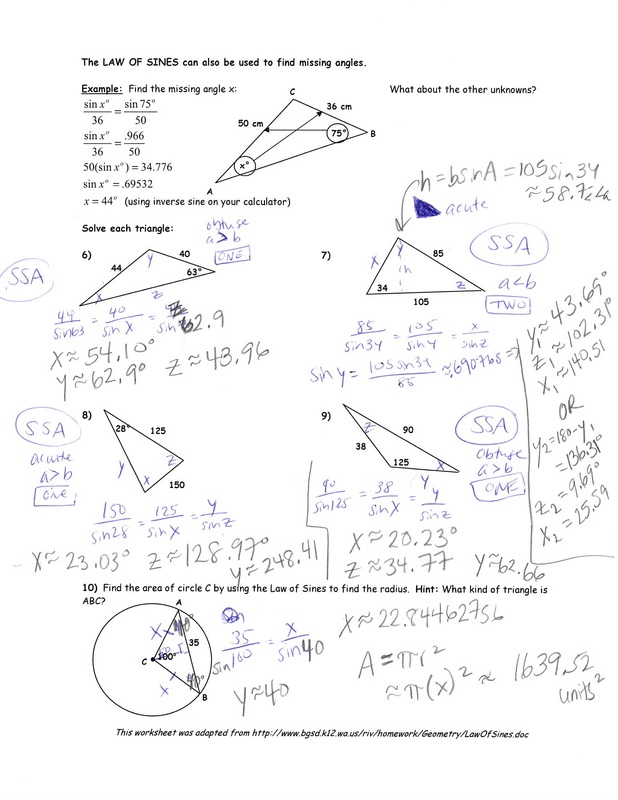 The LAW OF SINES can also be used to find missing angles.
Example: Find the missing angle x:
What about the other unknowns?
sin x° / 36 = sin 75° / 50
sin x° / 36 = .966 / 50
50(sin x°) = 34.776
sin x° = .69532
x = 44° (using inverse sine on your calculator)
C
36 cm
50 cm
75°
B
x°
A
h = b sin A = 105 sin 34
≈ 58.7
acute
Solve each triangle:
obtuse
a > b
ONE
SSA
6)
44
y
40
63°
x
z
44 / sin 63 = 40 / sin x =
62.9
x ≈ 54.10°
y ≈ 62.9°
z ≈ 43.96
7)
x
y
85
h
34
z
105
SSA
a < b
TWO
85 / sin 34 = 105 / sin y = x / sin z
sin y = 105 sin 34 / 85 ≈ .690768 ⇒
y₁ ≈ 43.69°
z₁ ≈ 102.31°
x₁ ≈ 140.51
OR
y₂ = 180 - y₁
= 136.31°
z₂ = 9.69°
x₂ = 25.59
8)
SSA
acute
a > b
one
28°
125
z
y
x
150
150 / sin 28 = 125 / sin x = y / sin z
x ≈ 23.03° z ≈ 128.97°
y ≈ 248.41
9)
z
90
38
125
x
y
SSA
Obtuse
a > b
ONE
90 / sin 125 = 38 / sin x = y / sin z
x ≈ 20.23°
z ≈ 34.77 y ≈ 62.66
10) Find the area of circle C by using the Law of Sines to find the radius. Hint: What kind of triangle is
ABC?
A
x
40°
35
C
100°
x
40°
B
35 / sin 100 = x / sin 40
y ≈ 40
x ≈ 22.84462756
A = πr²
≈ π(x)² ≈ 1639.52
units²
This worksheet was adapted from http://www.bgsd.k12.wa.us/riv/homework/Geometry/LawOfSines.doc